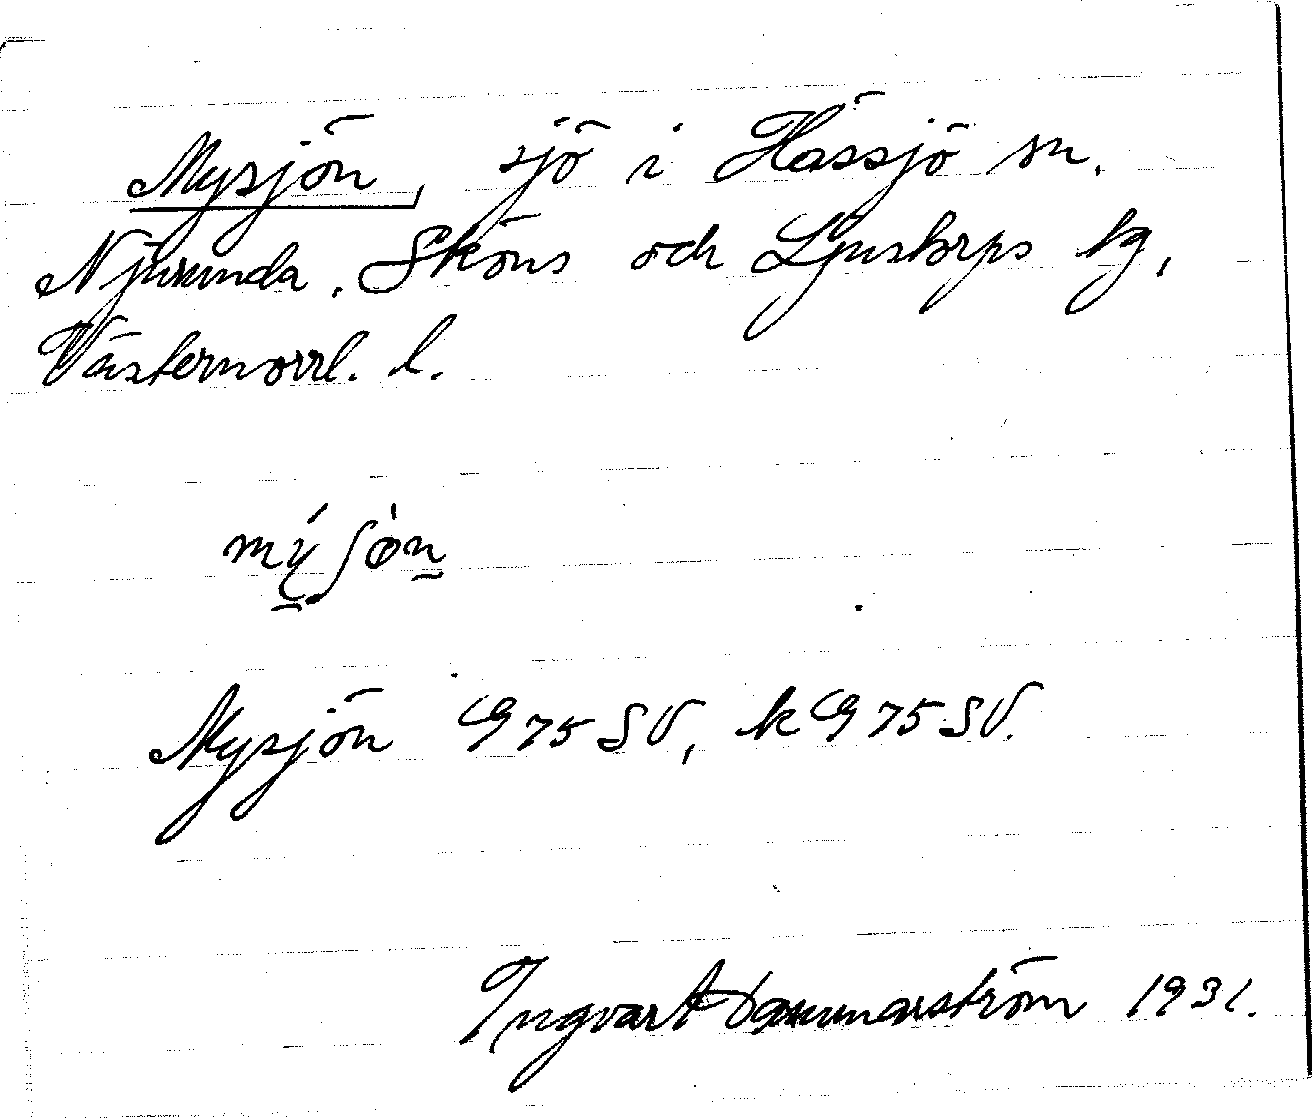 Mysjön, sjö i Hässjö sn.
Njurunda, Sköns och Ljustorps tg,
Västernorrl. l.
mý̠ʃòn̠
Mysjön G 75 SV, k G 75 SV.
Ingvar Hammarström 1931.